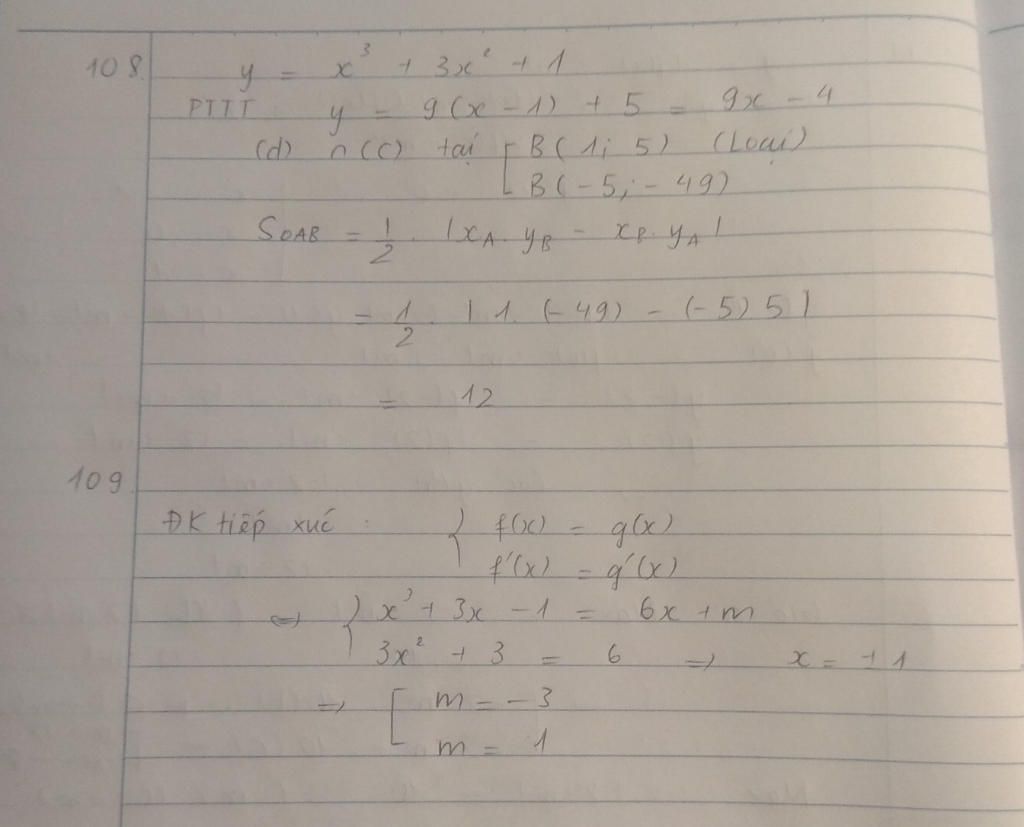 108. y = x³ + 3x² + 1
PTTT y = 9(x - 1) + 5 = 9x - 4
(d) ∩ (C) tại [ B(1; 5) (Loại)
B(-5; -49)
S_OAB = 1/2 . |x_A . y_B - x_B . y_A|
= 1/2 . |1. (-49) - (-5) 5|
= 12
109.
ĐK tiếp xúc : { f(x) = g(x)
f'(x) = g'(x)
⇔ { x³ + 3x - 1 = 6x + m
3x² + 3 = 6 ⇒ x = ±1
⇒ [ m = -3
m = 1